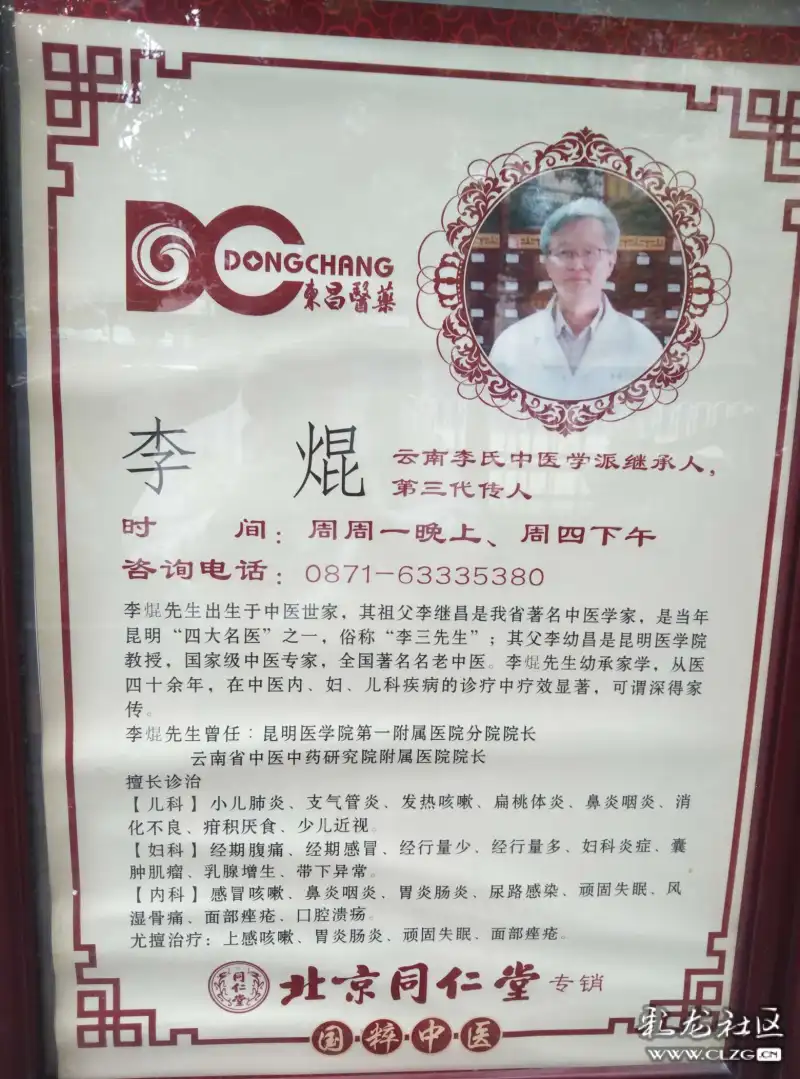 DC
DONGCHANG
東昌醫藥
李焜
云南李氏中医学派继承人，
第三代传人
时 间：周周一晚上、周四下午
咨询电话：0871-63335380
李焜先生出生于中医世家，其祖父李继昌是我省著名中医学家，是当年
昆明“四大名医”之一，俗称“李三先生”；其父李幼昌是昆明医学院
教授，国家级中医专家，全国著名名老中医。李焜先生幼承家学，从医
四十余年，在中医内、妇、儿科疾病的诊疗中疗效显著，可谓深得家
传。
李焜先生曾任：昆明医学院第一附属医院分院院长
云南省中医中药研究院附属医院院长
擅长诊治
【儿科】小儿肺炎、支气管炎、发热咳嗽、扁桃体炎、鼻炎咽炎、消
化不良、疳积厌食、少儿近视。
【妇科】经期腹痛、经期感冒、经行量少、经行量多、妇科炎症、囊
肿肌瘤、乳腺增生、带下异常。
【内科】感冒咳嗽、鼻炎咽炎、胃炎肠炎、尿路感染、顽固失眠、风
湿骨痛、面部痤疮、口腔溃疡。
尤擅治疗：上感咳嗽、胃炎肠炎、顽固失眠、面部痤疮。
同仁堂
北京同仁堂 专销
国·粹·中·医
彩龙社区
www.CLZG.CN